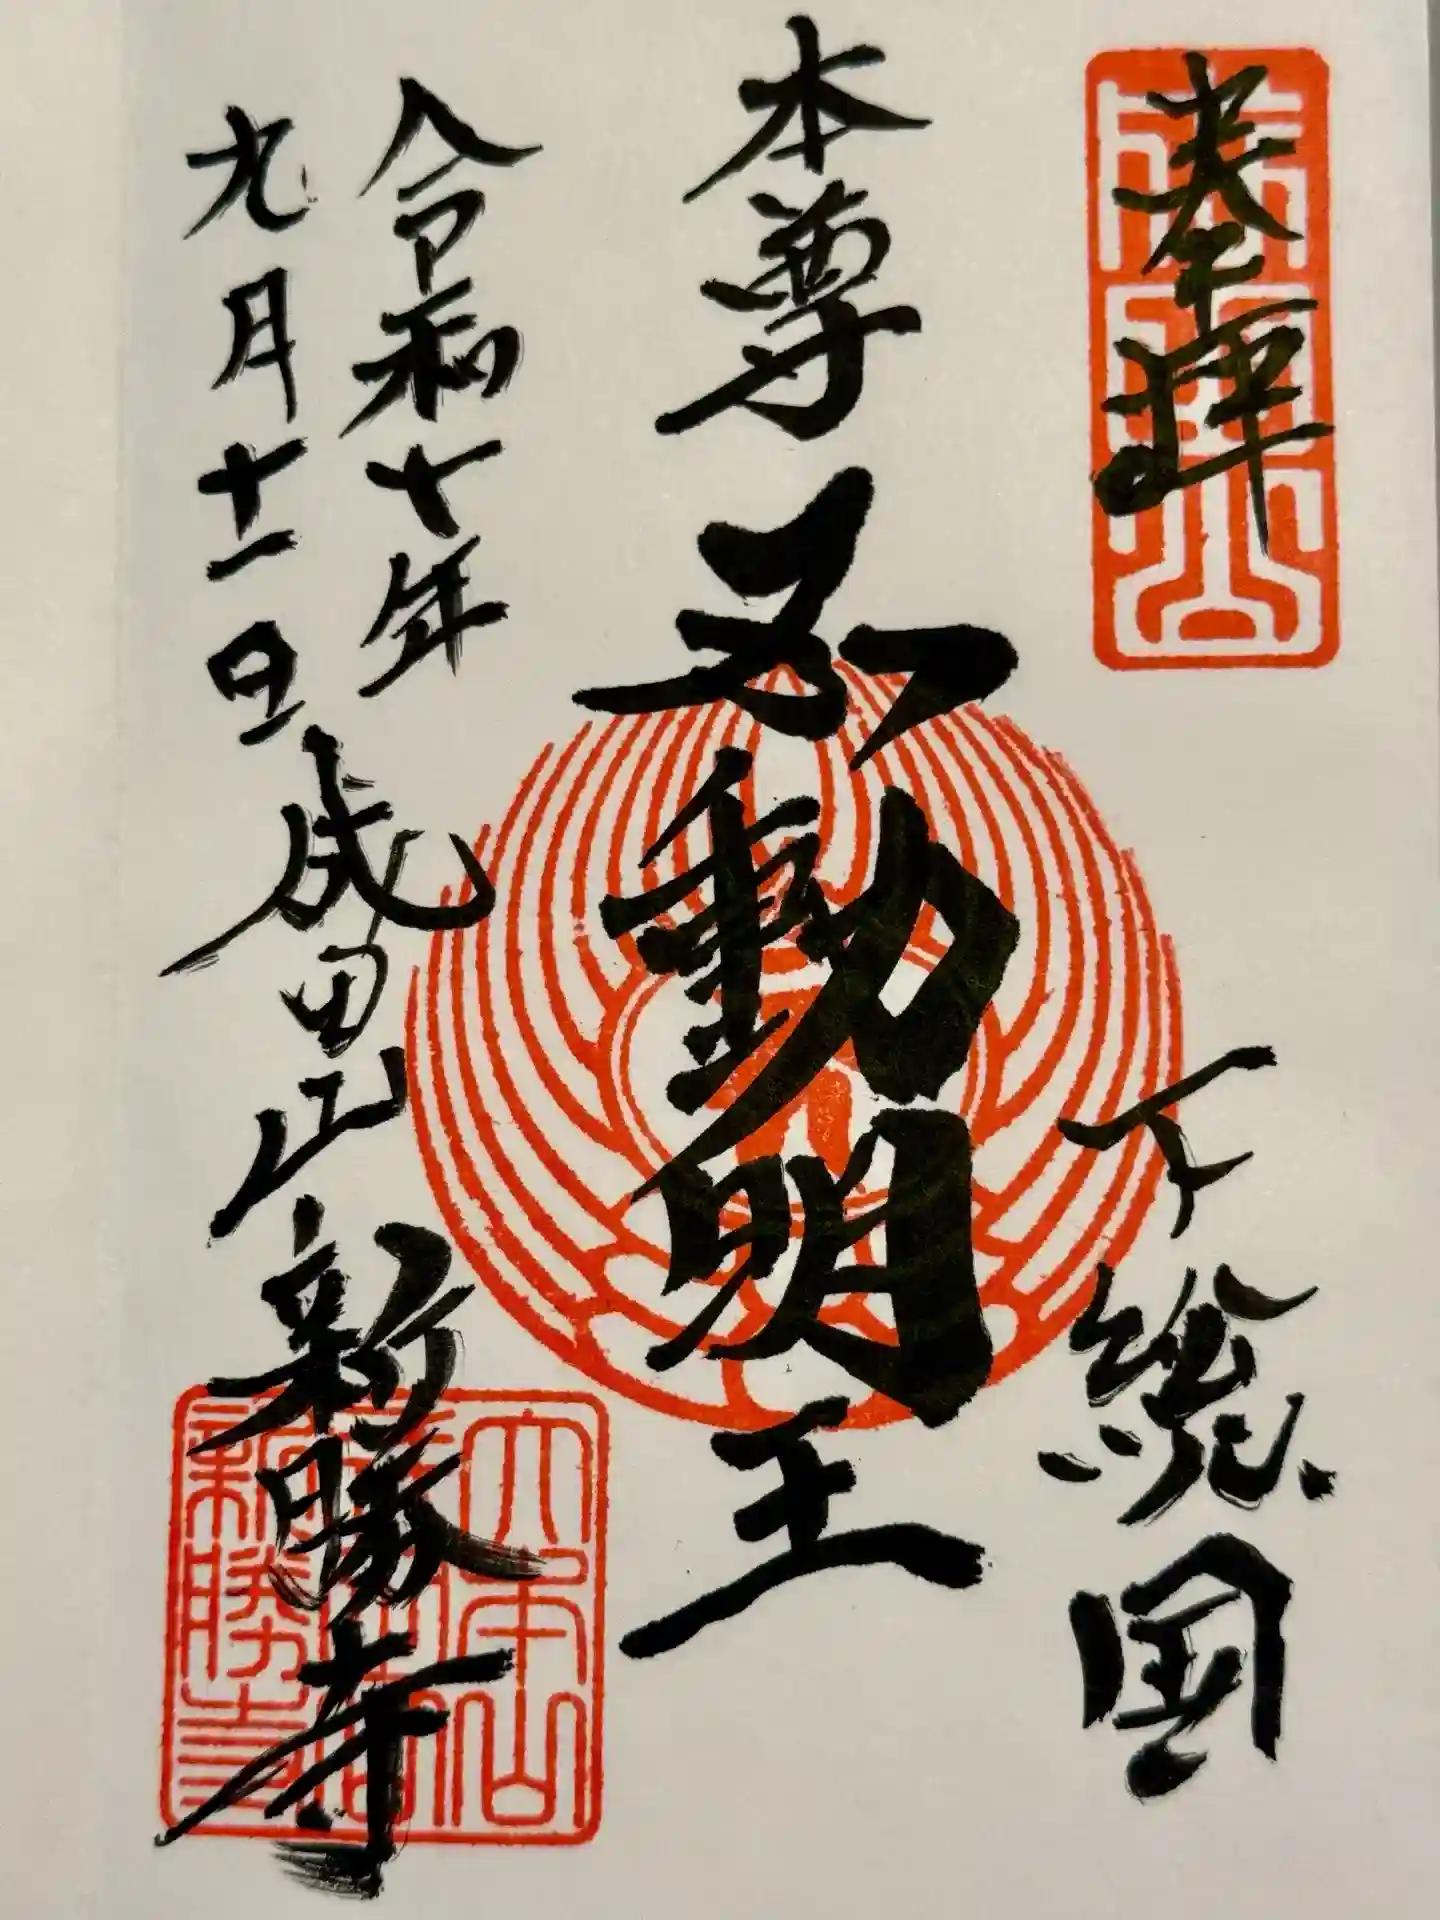 奉拝
下総国
本尊 不動明王
令和七年
九月十一日
成田山新勝寺
大本山
成田山
新勝寺